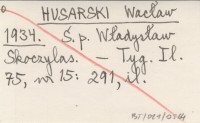 HUSARSKI Wacław
1934. Ś.p. Władysław
Skoczylas. — Tyg. Il.
75, nr 15: 291, il.